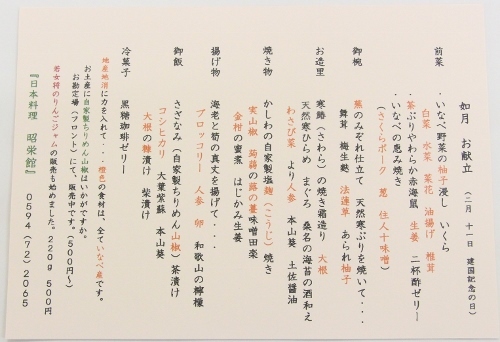 如月 お献立 (二月 十一日 建国記念の日)
前菜 ・いなべ野菜の柚子浸し いくら
白菜 水菜 菜花 油揚げ 椎茸
・茶ぶりやわらか赤海鼠 生姜 二杯酢ゼリー
・いなべの恵み焼き
(さくらポーク 葱 住人十味噌)
御椀 蕪のみぞれ仕立て 天然寒ぶりを焼いて・・・
舞茸 梅生麩 法蓮草 あられ柚子
お造里 寒鰆(さわら)の焼き霜造り 大根
天然寒ひらめ まぐろ 桑名の海苔の酒和え
わさび菜 より人参 本山葵 土佐醤油
焼き物 かしわの自家製塩麹(こうじ)焼き
実山椒 蒟蒻の蕗の薹味噌田楽
金柑の蜜煮 はじかみ生姜
揚げ物 海老と筍の真丈を揚げて・・・
ブロッコリー 人参 卵 和歌山の檸檬
御飯 さざなみ(自家製ちりめん山椒)茶漬け
コシヒカリ 大葉紫蘇 本山葵
大根の糠漬け 柴漬け
冷菓子 黒糖珈琲ゼリー
地産地消に力を入れて・・・橙色の食材は、全ていなべ産です。
お土産に自家製ちりめん山椒はいかがですか。
お勘定場(フロント)にて、販売中です。(500円〜)
若女将のりんごジャムの販売も始めました。220g 500円
『日本料理 昭栄館』 0594(72)2065